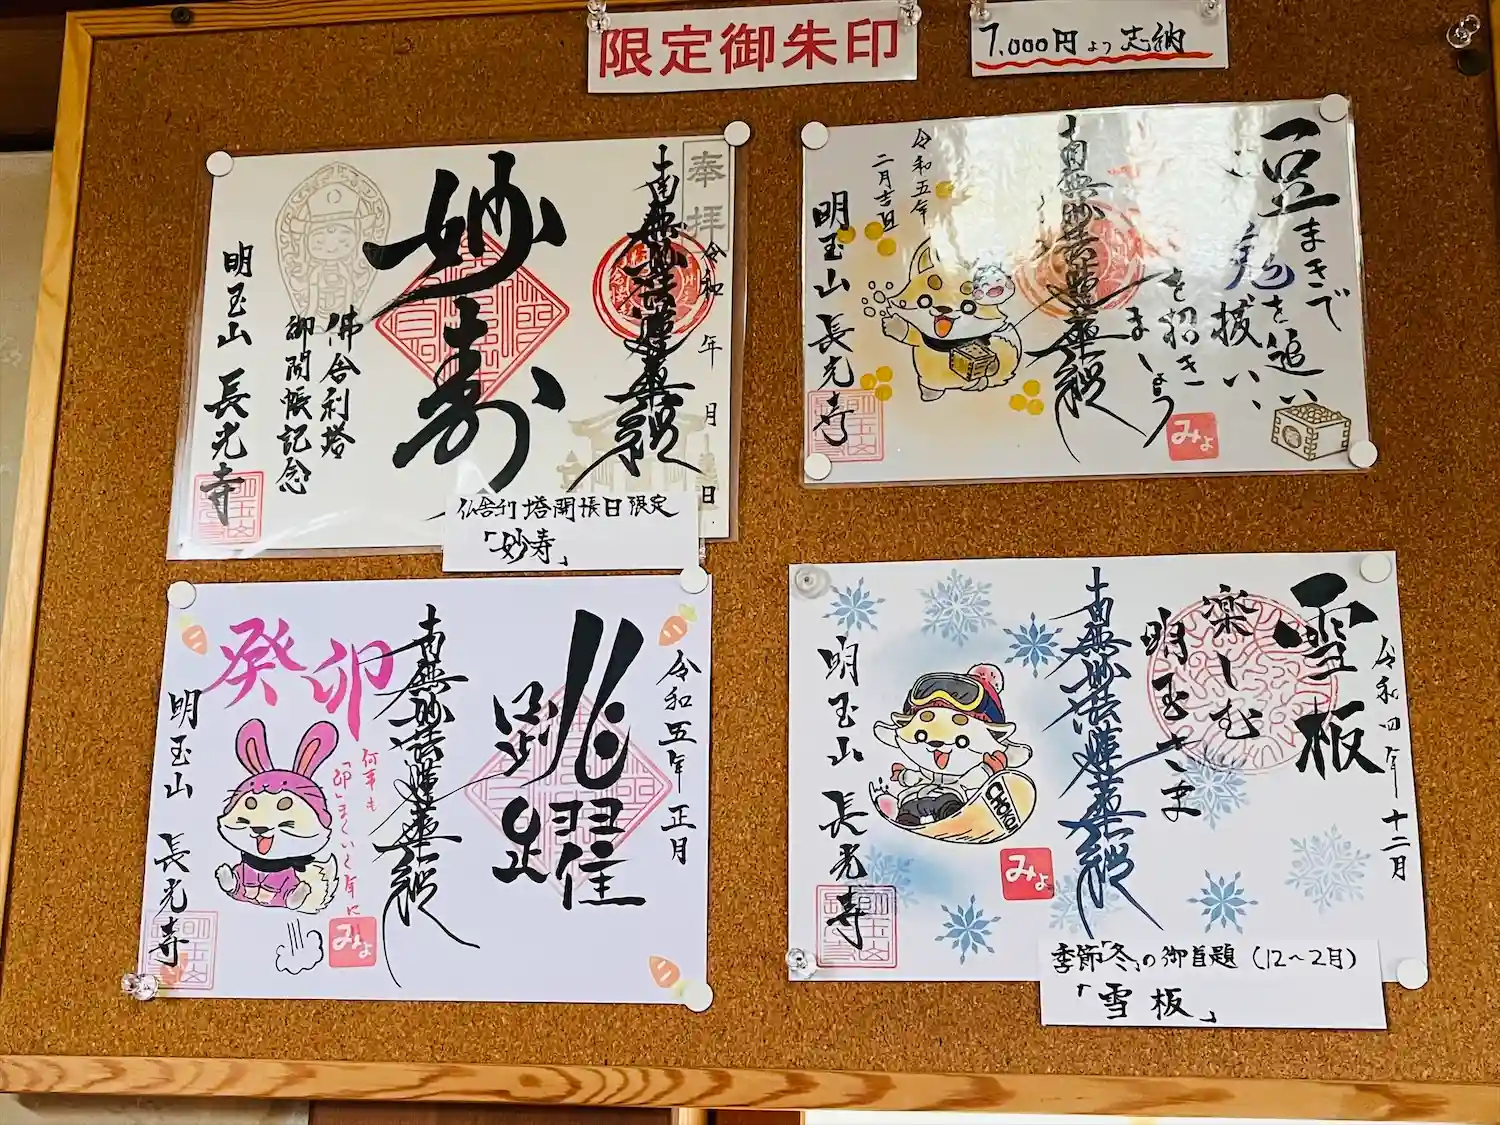 限定御朱印
7,000円より志納
奉拝
令和 年 月 日
南無妙法蓮華経
妙寿
佛舎利塔
御開帳記念
明玉山 長光寺
仏舎利塔開帳日限定
「妙寿」
豆まきで
鬼を追い
抜い、
を招き
ましょう
南無妙法蓮華経
令和五年
二月吉日
明玉山 長光寺
みょ
令和五年 正月
跳躍
南無妙法蓮華経
癸卯
何事も
「卯」まくいく年に
明玉山 長光寺
みょ
令和四年 十二月
雪板
楽しむ
明玉さま
南無妙法蓮華経
CHOKO
明玉山 長光寺
みょ
季節「冬」の御首題(12〜2月)
「雪板」